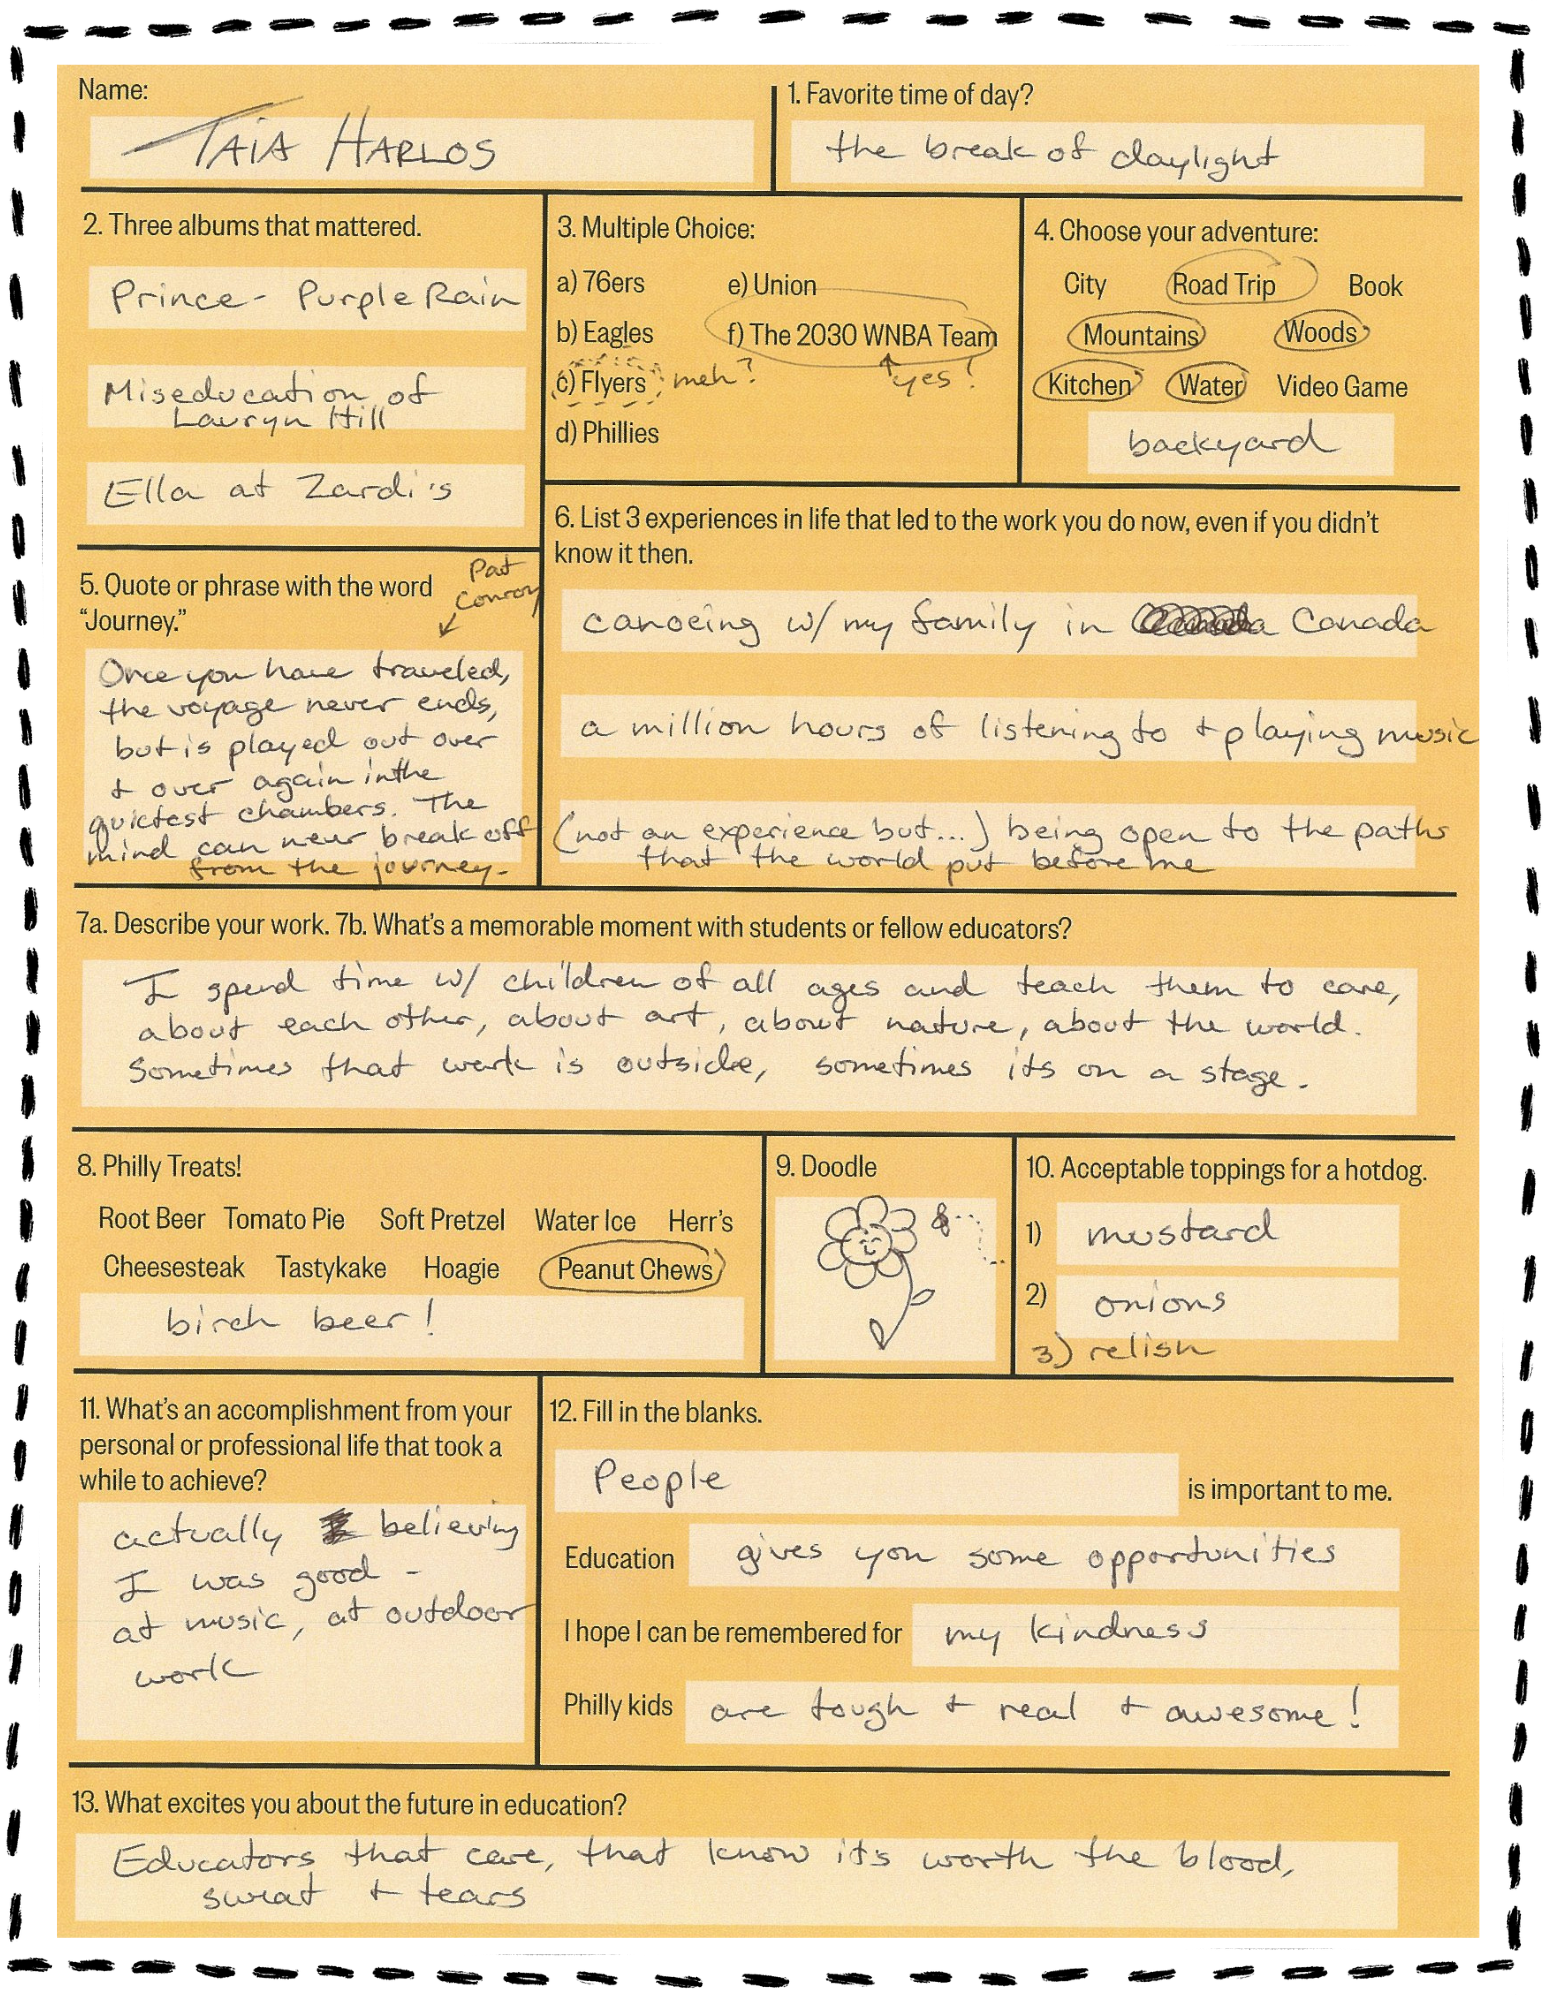 Name:
TAIA HARLOS
1. Favorite time of day?
the break of daylight
2. Three albums that mattered.
Prince - Purple Rain
Miseducation of
Lauryn Hill
Ella at Zardi's
3. Multiple Choice:
a) 76ers e) Union
b) Eagles f) The 2030 WNBA Team
c) Flyers meh? yes!
d) Phillies
4. Choose your adventure:
City Road Trip Book
Mountains Woods
Kitchen Water Video Game
backyard
5. Quote or phrase with the word
"Journey."
Pat
Conroy
Once you have traveled,
the voyage never ends,
but is played out over
+ over again in the
quietest chambers. The
mind can never break off
from the journey.
6. List 3 experiences in life that led to the work you do now, even if you didn't
know it then.
canoeing w/ my family in Canada
a million hours of listening to + playing music
(not an experience but...) being open to the paths
that the world put before me
7a. Describe your work. 7b. What's a memorable moment with students or fellow educators?
I spend time w/ children of all ages and teach them to care,
about each other, about art, about nature, about the world.
Sometimes that work is outside, sometimes its on a stage.
8. Philly Treats!
Root Beer Tomato Pie Soft Pretzel Water Ice Herr's
Cheesesteak Tastykake Hoagie Peanut Chews
birch beer!
9. Doodle
10. Acceptable toppings for a hotdog.
1) mustard
2) onions
3) relish
11. What's an accomplishment from your
personal or professional life that took a
while to achieve?
actually believing
I was good -
at music, at outdoor
work
12. Fill in the blanks.
People is important to me.
Education gives you some opportunities
I hope I can be remembered for my kindness
Philly kids are tough + real + awesome!
13. What excites you about the future in education?
Educators that care, that know it's worth the blood,
sweat + tears